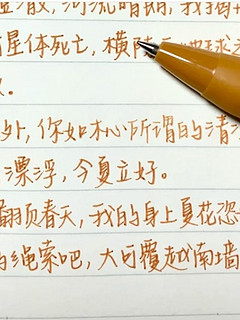 河流暗哑,我
星体死亡,横陈
外,你如木心所谓的清
漂浮,今夏立好。
翻页春天,我的身上夏花恣
的绳索吧,大可覆越南墙